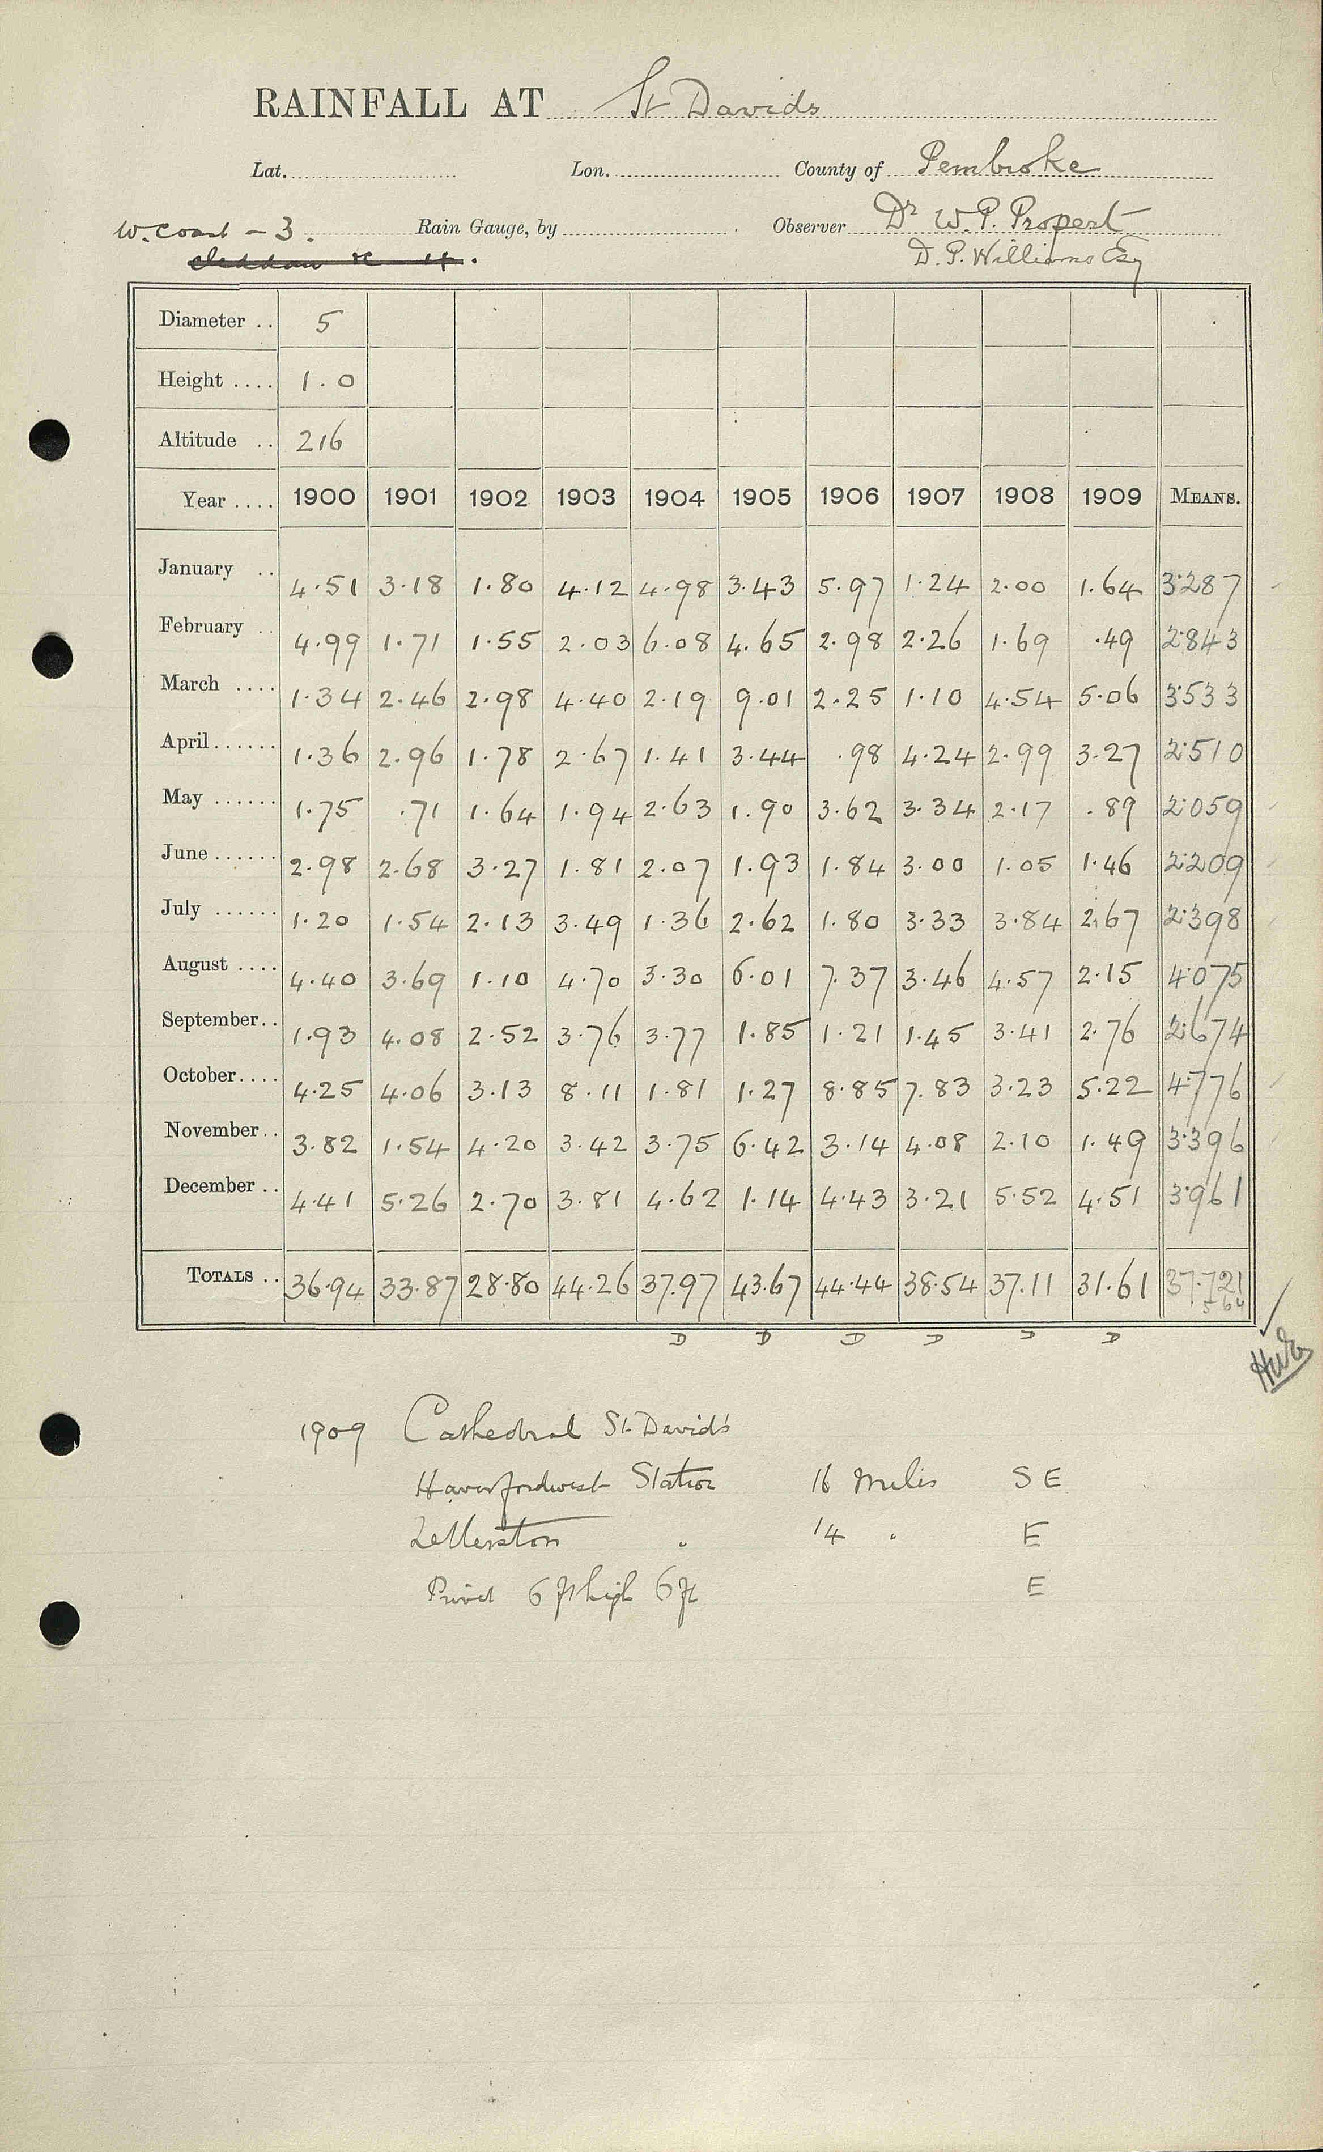 RAINFALL AT St Davids
Lat. Lon. County of Pembroke
W. Coast - 3. Rain Gauge, by Observer Dr W. P. Propert
D. P. Williams Esq
Diameter .. 5
Height .... 1.0
Altitude .. 216
Year .... 1900 1901 1902 1903 1904 1905 1906 1907 1908 1909 MEANS.
January .. 4.51 3.18 1.80 4.12 4.98 3.43 5.97 1.24 2.00 1.64 3.287
February .. 4.99 1.71 1.55 2.03 6.08 4.65 2.98 2.26 1.69 .49 2.843
March .... 1.34 2.46 2.98 4.40 2.19 9.01 2.25 1.10 4.54 5.06 3.533
April...... 1.36 2.96 1.78 2.67 1.41 3.44 .98 4.24 2.99 3.27 2.510
May ...... 1.75 .71 1.64 1.94 2.63 1.90 3.62 3.34 2.17 .89 2.059
June...... 2.98 2.68 3.27 1.81 2.07 1.93 1.84 3.00 1.05 1.46 2.209
July ...... 1.20 1.54 2.13 3.49 1.36 2.62 1.80 3.33 3.84 2.67 2.398
August .... 4.40 3.69 1.10 4.70 3.30 6.01 7.37 3.46 4.57 2.15 4.075
September.. 1.93 4.08 2.52 3.76 3.77 1.85 1.21 1.45 3.41 2.76 2.674
October.... 4.25 4.06 3.13 8.11 1.81 1.27 8.85 7.83 3.23 5.22 4.776
November.. 3.82 1.54 4.20 3.42 3.75 6.42 3.14 4.08 2.10 1.49 3.396
December .. 4.41 5.26 2.70 3.81 4.62 1.14 4.43 3.21 5.52 4.51 3.961
TOTALS .. 36.94 33.87 28.80 44.26 37.97 43.67 44.44 38.54 37.11 31.61 37.721
D D D D D D
1909 Cathedral St. David's
Haverfordwest Station 16 miles S E
Letterston " 14 " E
6 ft high 6 ft E